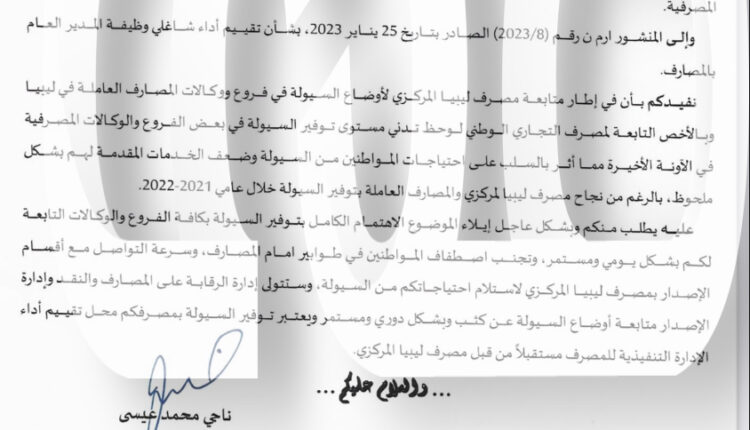 المصرفية.
وإلى المنشور ارم ن رقم (2023/8) الصادر بتاريخ 25 يناير 2023، بشأن تقييم أداء شاغلي وظيفة المدير العام
بالمصارف.
نفيدكم بأن في إطار متابعة مصرف ليبيا المركزي لأوضاع السيولة في فروع ووكالات المصارف العاملة في ليبيا
وبالأخص التابعة لمصرف التجاري الوطني لوحظ تدني مستوى توفير السيولة في بعض الفروع والوكالات المصرفية
في الآونة الأخيرة مما أثر بالسلب على احتياجات المواطنين من السيولة وضعف الخدمات المقدمة لهم بشكل
ملحوظ، بالرغم من نجاح مصرف ليبيا لمركزي والمصارف العاملة بتوفير السيولة خلال عامي 2021-2022.
عليه يطلب منكم وبشكل عاجل إيلاء الموضوع الاهتمام الكامل بتوفير السيولة بكافة الفروع والوكالات التابعة
لكم بشكل يومي ومستمر، وتجنب اصطفاف المواطنين في طوابير امام المصارف، وسرعة التواصل مع أقسام
الإصدار بمصرف ليبيا المركزي لاستلام احتياجاتكم من السيولة، وستتولى إدارة الرقابة على المصارف والنقد وإدارة
الإصدار متابعة أوضاع السيولة عن كثب وبشكل دوري ومستمر ويعتبر توفير السيولة بمصرفكم محل تقييم أداء
الإدارة التنفيذية للمصرف مستقبلاً من قبل مصرف ليبيا المركزي.
... والسلام عليكم ...
ناجي محمد عيسى